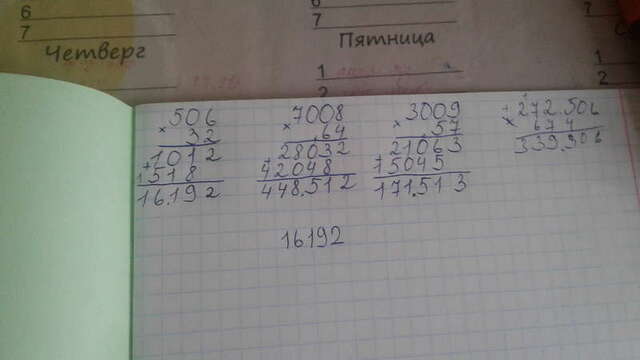 6
7
Четверг
Пятница
1
2
2
506
× 32
1012
+1518
16.192
7008
× 64
28032
+42048
448.512
3009
× 57
21063
15045
171.513
272.506
× 674
339.906
16192